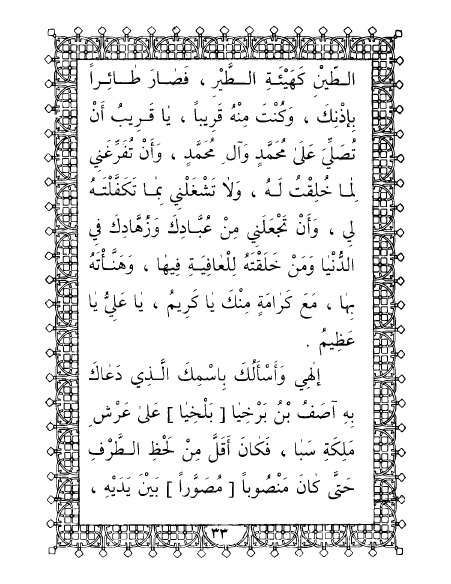 الطِّيْنِ كَهَيْئَةِ الطَّيْرِ ، فَصَارَ طَائِراً
بِإذْنِكَ ، وَكُنْتَ مِنْهُ قَرِيباً ، يَا قَرِيبُ أَنْ
تُصَلِّيَ عَلَىٰ مُحَمَّدٍ وَآلِ مُحَمَّدٍ ، وَأَنْ تُفَرِّغَنِي
لِمَا خُلِقْتُ لَهُ ، وَلَا تَشْغَلْنِي بِمَا تَكَفَّلْتَهُ
لِي ، وَأَنْ تَجْعَلَنِي مِنْ عُبَّادِكَ وَزُهَّادِكَ فِي
الدُّنْيَا وَمَنْ خَلَقْتَهُ لِلْعَافِيَةِ فِيهَا ، وَهَنَّأْتَهُ
بِهَا ، مَعَ كَرَامَةٍ مِنْكَ يَا كَرِيمُ ، يَا عَلِيُّ يَا
عَظِيمُ .
إلٰهِي وَأَسْأَلُكَ بِاسْمِكَ الَّذِي دَعَاكَ
بِهِ آصَفُ بْنُ بَرْخِيَا [ بَلْخِيَا ] عَلىٰ عَرْشِ
مَلِكَةِ سَبَا ، فَكَانَ أَقَلَّ مِنْ لَحْظِ الطَّرْفِ
حَتَّى كَانَ مَنْصُوباً [ مُصَوَّراً ] بَيْنَ يَدَيْهِ ،
٣٣